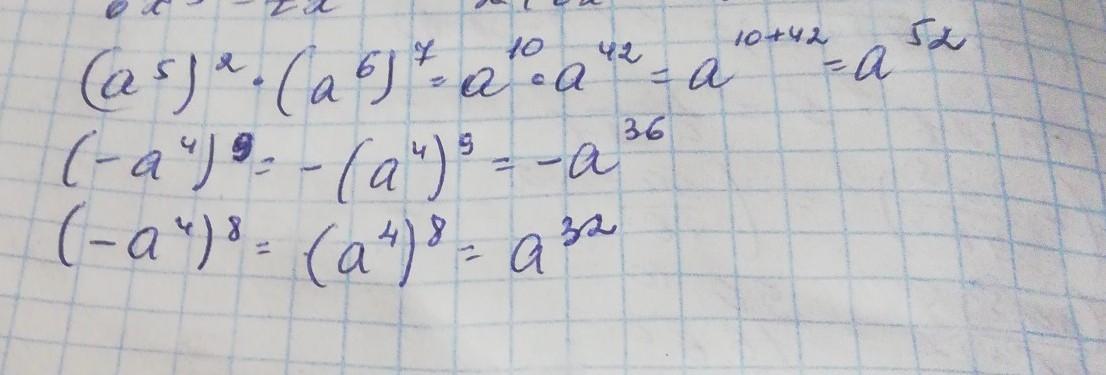 (a⁵)² · (a⁶)⁷ = a¹⁰ · a⁴² = a¹⁰⁺⁴² = a⁵²
(-a⁴)⁹ = -(a⁴)⁹ = -a³⁶
(-a⁴)⁸ = (a⁴)⁸ = a³²